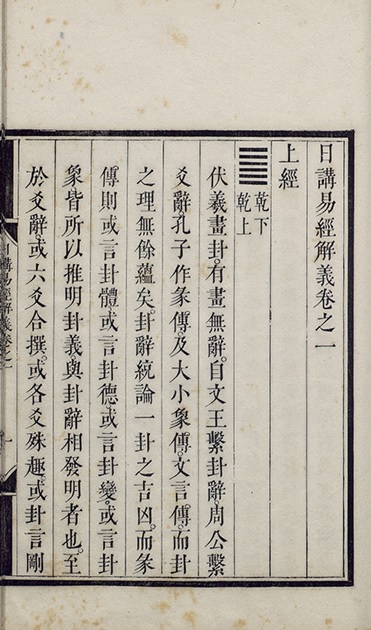 日講易經解義卷之一
上經
䷀
乾下
乾上
伏羲畫卦。有畫無辭。自文王繫卦辭。周公繫
爻辭。孔子作彖傳。及大小象傳。文言傳。而卦
之理無餘蘊矣。卦辭統論一卦之吉凶。而彖
傳則或言卦體。或言卦德。或言卦變。或言卦
象。皆所以推明卦義。與卦辭相發明者也。至
於爻辭。或六爻合撰。或各爻殊趣。或卦言剛
日講易經解義卷之一
一